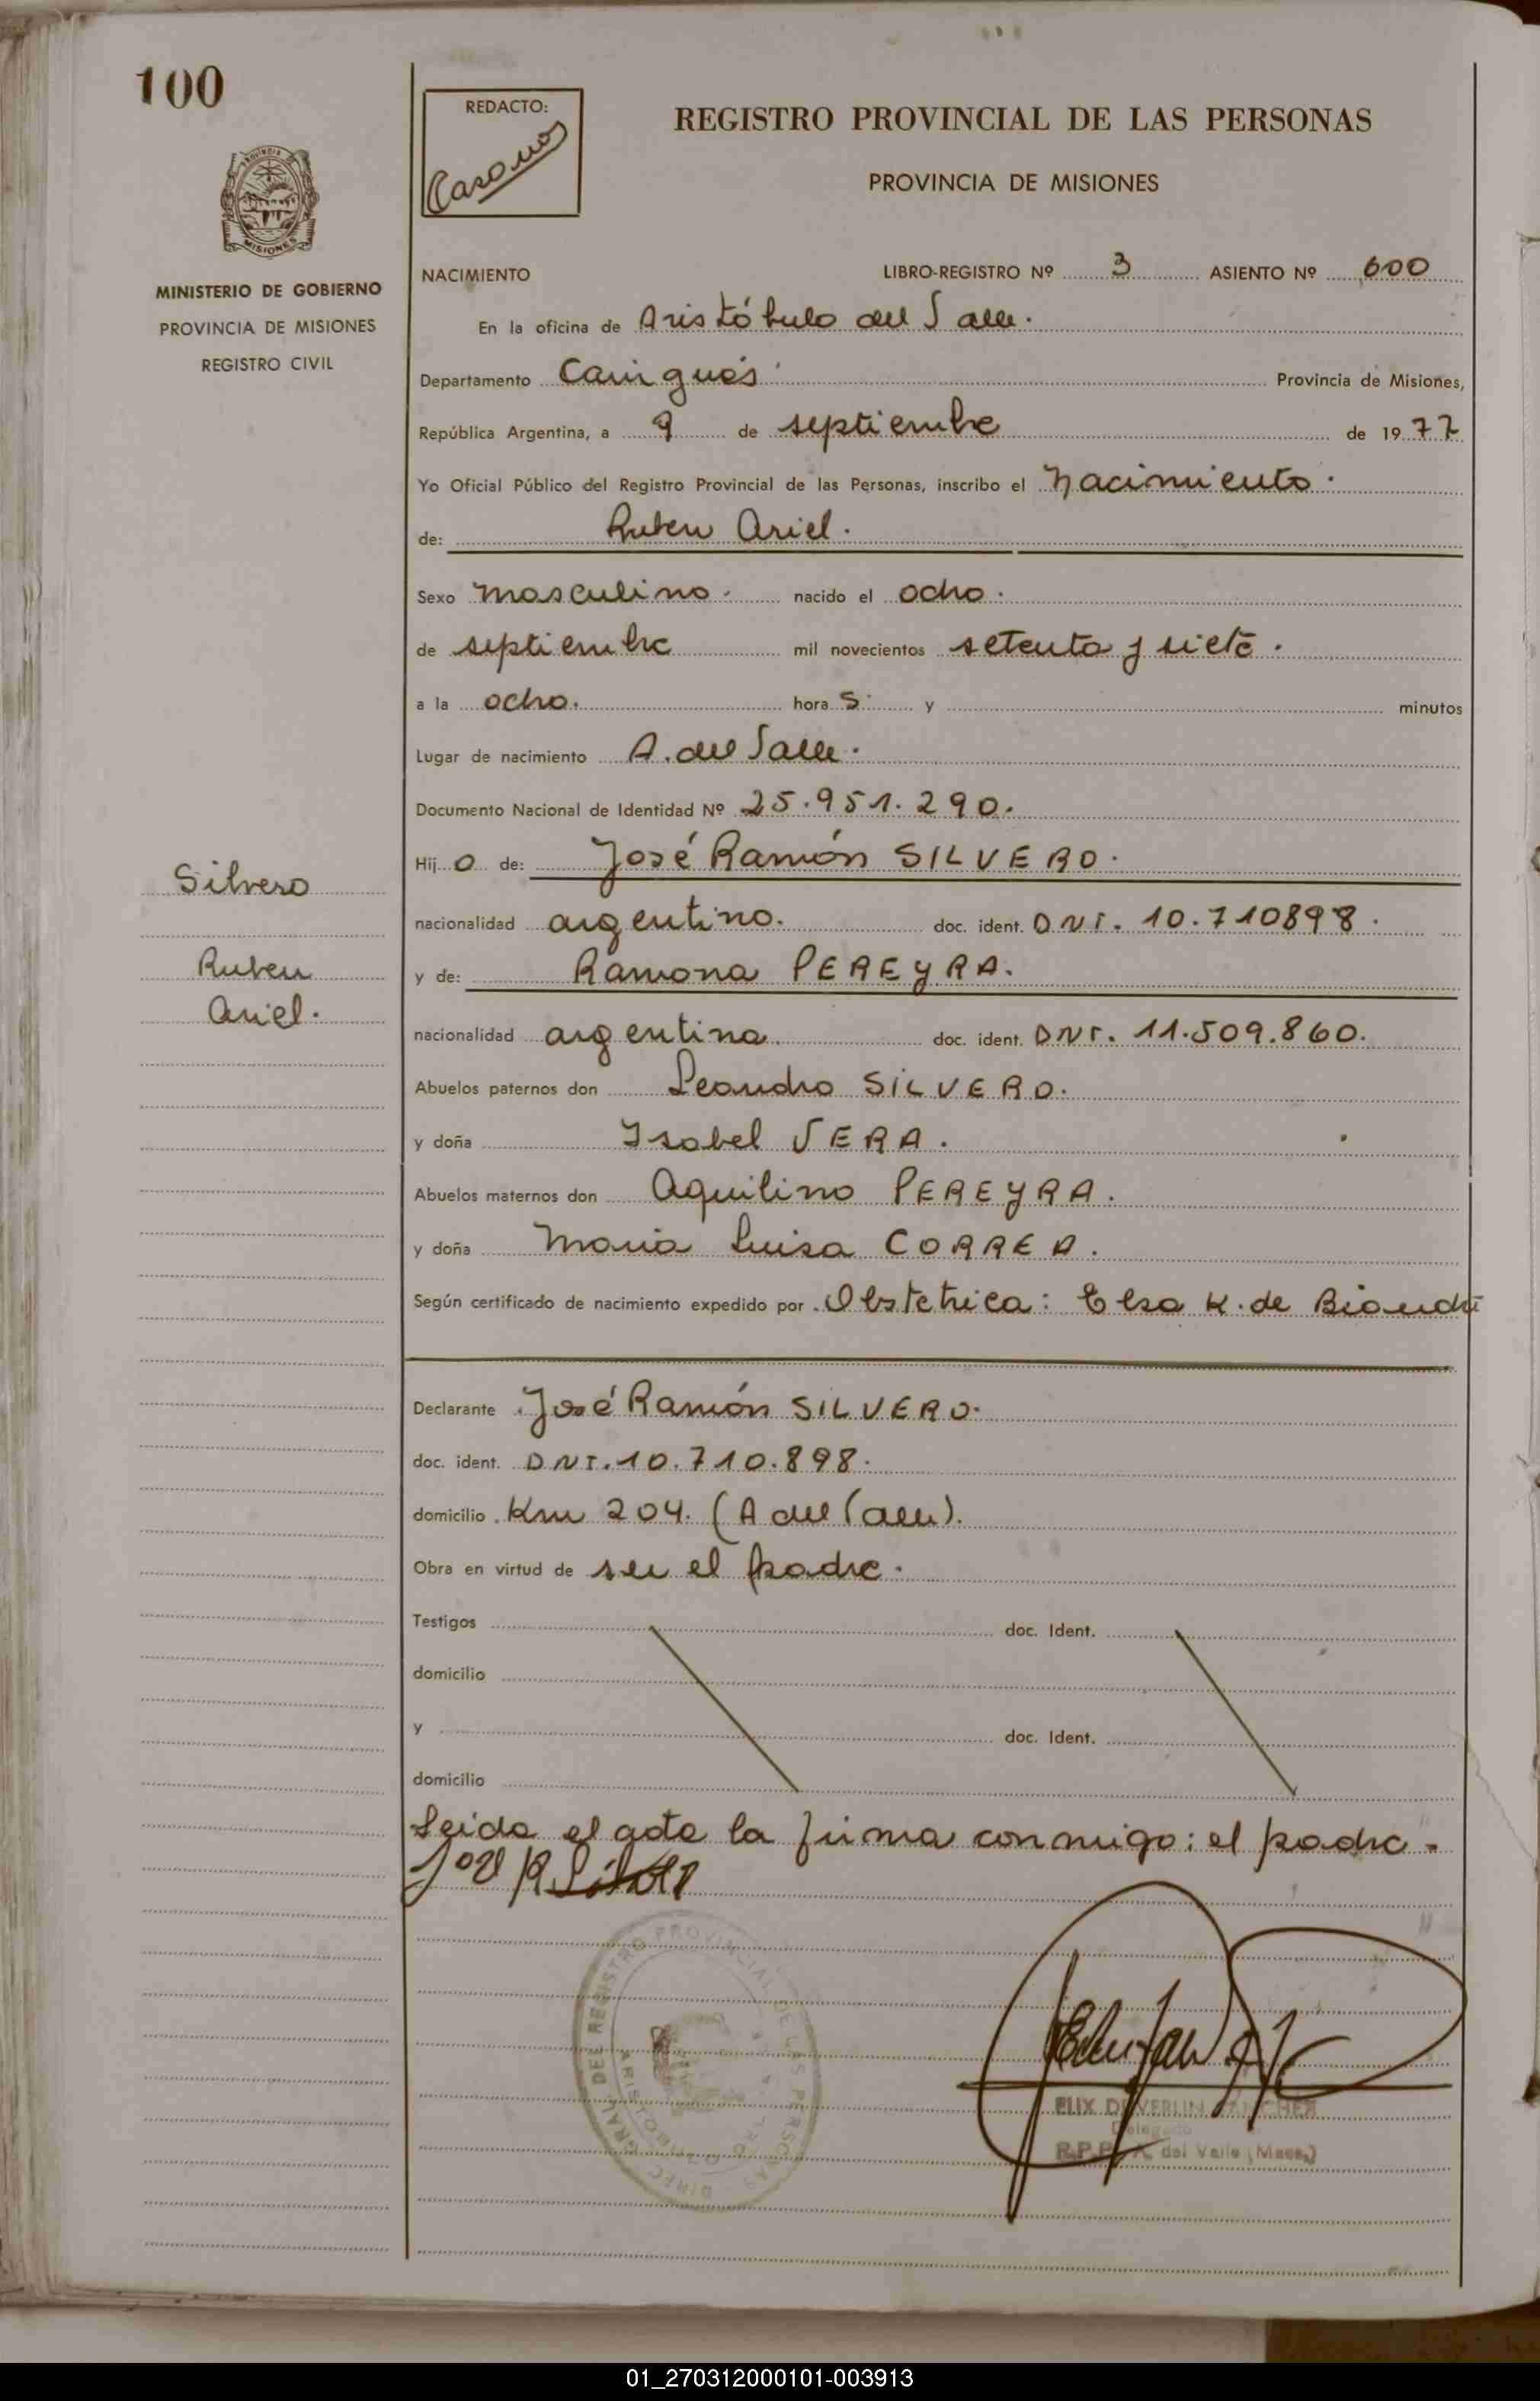 100
REDACTO:
REGISTRO PROVINCIAL DE LAS PERSONAS
PROVINCIA DE MISIONES
MISIONES
MINISTERIO DE GOBIERNO
PROVINCIA DE MISIONES
REGISTRO CIVIL
NACIMIENTO LIBRO-REGISTRO Nº 3 ASIENTO Nº 600
En la oficina de Aristóbulo del Valle.
Departamento Cainguás Provincia de Misiones,
República Argentina, a 9 de septiembre de 1977
Yo Oficial Público del Registro Provincial de las Personas, inscribo el nacimiento.
de: Ruben Ariel.
Sexo masculino. nacido el ocho.
de septiembre mil novecientos setenta y siete.
a la ocho. hora s. y minutos
Lugar de nacimiento A. del Valle.
Documento Nacional de Identidad Nº 25.951.290.
Hij o de: José Ramón SILVERO.
Silvero
nacionalidad argentino. doc. ident. DNI. 10.710898.
Ruben
y de: Ramona PEREYRA.
Ariel.
nacionalidad argentina. doc. ident. DNI. 11.509.860.
Abuelos paternos don Leandro SILVERO.
y doña Isabel VERA.
Abuelos maternos don Aquilino PEREYRA.
y doña Maria Luisa CORREA.
Según certificado de nacimiento expedido por Obstetrica: Elsa K. de Biondi
Declarante José Ramón SILVERO.
doc. ident. DNI. 10.710.898.
domicilio Km 204. (A del Valle).
Obra en virtud de ser el padre.
Testigos doc. Ident.
domicilio
y doc. Ident.
domicilio
Leida el acta la firma conmigo: el padre.
José R Silvero
DIREC. GRAL. DEL REGISTRO PROVINCIAL DE LAS PERSONAS
Delegado
R.P.P. A. del Valle (Mnes.)
01_270312000101-003913